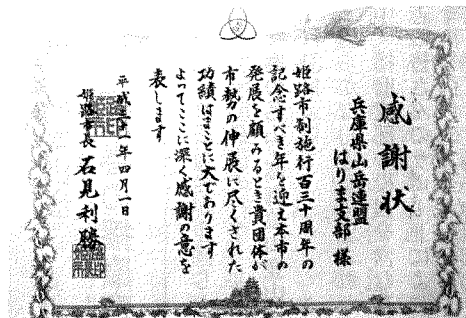 感謝状
兵庫県山岳連盟
はりま支部 様
姫路市制施行百三十周年の
記念すべき年を迎え本市の
発展を顧みるとき貴団体が
市勢の伸展に尽くされた
功績はまことに大であります
よってここに深く感謝の意を
表します
平成三十一年四月一日
姫路市長 石見利勝